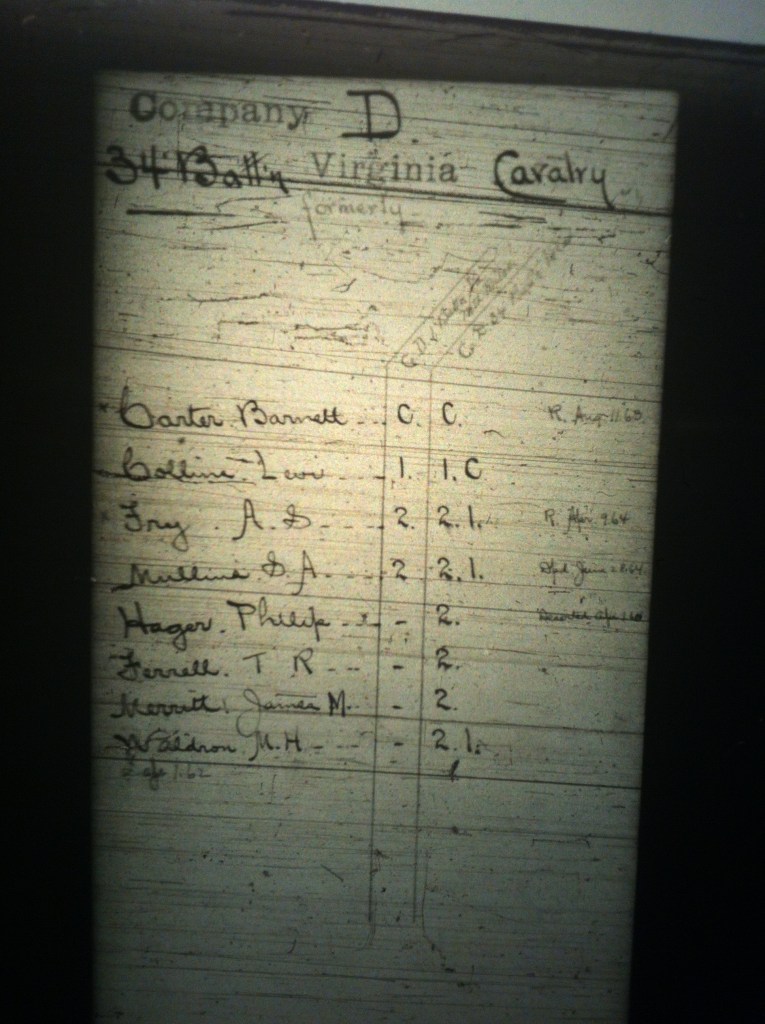 Company D.
34" Batt'n Virginia Cavalry
formerly
Carter Barnett C. C. R. Aug 11.63
Collins Levi 1. 1. C
Fry. A. S. 2. 2. 1. R. Apr. 9.64
Mullins S. A. 2 2. 1. June 28.64
Hager. Philip - 2. Deserted
Ferrell. T R - 2.
Merritt, James M. - 2.
Waldron M. H - 2. 1.
1.62